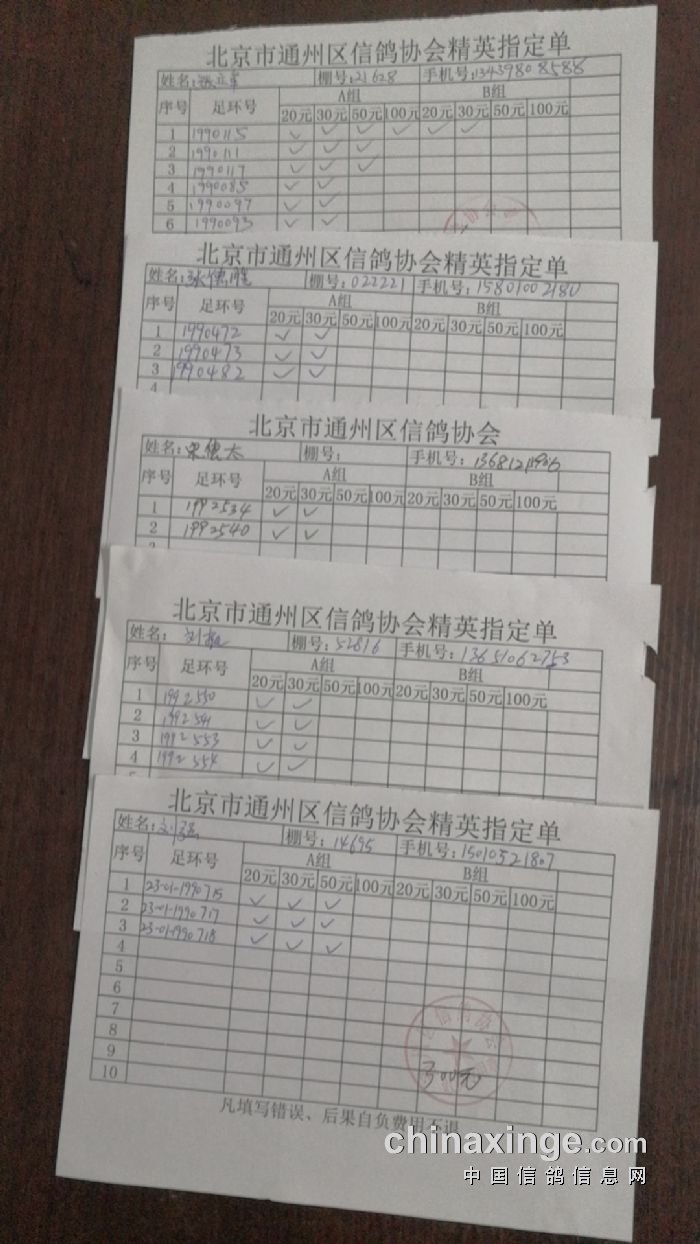 北京市通州区信鸽协会精英指定单
姓名: 棚号:21628 手机号:13439808588
序号 足环号 A组 B组
20元 30元 50元 100元 20元 30元 50元 100元
1 1990115 ✓ ✓ ✓ ✓ ✓ ✓
2 1990111 ✓ ✓ ✓
3 1990117 ✓ ✓ ✓
4 1990085 ✓ ✓
5 1990097 ✓ ✓
6 1990093 ✓ ✓
北京市通州区信鸽协会精英指定单
姓名: 棚号:022221 手机号:15801002180
序号 足环号 A组 B组
20元 30元 50元 100元 20元 30元 50元 100元
1 1990472 ✓ ✓
2 1990473 ✓ ✓
3 1990482 ✓ ✓
4
北京市通州区信鸽协会
姓名:宋德太 棚号: 手机号:
序号 足环号 A组 B组
20元 30元 50元 100元 20元 30元 50元 100元
1 1992534 ✓ ✓
2 1992540 ✓ ✓
北京市通州区信鸽协会精英指定单
姓名: 棚号:52816 手机号:13651062753
序号 足环号 A组 B组
20元 30元 50元 100元 20元 30元 50元 100元
1 1992550 ✓ ✓
2 1992541 ✓ ✓
3 1992553 ✓ ✓
4 1992554 ✓ ✓
北京市通州区信鸽协会精英指定单
姓名:刘强 棚号:14695 手机号:15010521807
序号 足环号 A组 B组
20元 30元 50元 100元 20元 30元 50元 100元
1 23-01-1990715 ✓ ✓ ✓
2 23-01-1990717 ✓ ✓ ✓
3 23-01-1990718 ✓ ✓ ✓
4
5
6
7
8
9
10
300元
凡填写错误、后果自负费用不退
chinaxinge.com
中国信鸽信息网